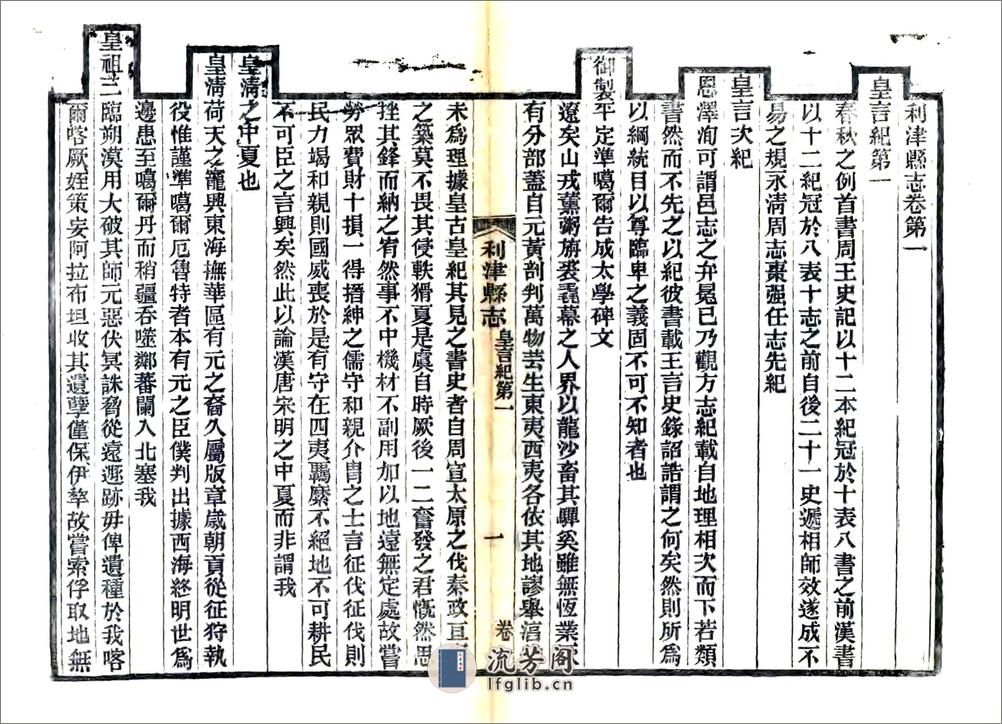 利津縣志卷第一
皇言紀第一
春秋之例首書周王史記以十二本紀冠於十表八書之前漢書
以十二紀冠於八表十志之前自後二十一史遞相師效遂成不
易之規永淸周志棗强任志先紀
皇言次紀
恩澤洵可謂邑志之弁冕已乃觀方志紀載自地理相次而下若類
書然而不先之以紀彼書載王言史錄詔誥謂之何矣然則所爲
以綱統目以尊臨卑之義固不可不知者也
御製平定準噶爾告成太學碑文
遼矣山戎薰粥旃裘毳幕之人界以龍沙畜其驒奚雖無恆業
有分部蓋自元黃剖判萬物芸生東夷西夷各依其地謬舉淯
未爲理據皇古皇紀其見之書史者自周宣太原之伐秦政亘
之築莫不畏其侵軼猾夏是虞自時厥後一二奮發之君慨然思
挫其鋒而納之宥然事不中機材不副用加以地遠無定處故嘗
勞眾費財十損一得搢紳之儒守和親介冑之士言征伐征伐則
民力竭和親則國威喪於是有守在四夷羈縻不絕地不可耕民
不可臣之言興矣然此以論漢唐宋明之中夏而非謂我
皇淸之中夏也
皇淸荷天之寵興東海撫華區有元之裔久屬版章歲朝貢從征狩執
役惟謹準噶爾厄魯特者本有元之臣僕判出據西海終明世爲
邊患至噶爾丹而稍彊吞噬鄰蕃闌入北塞我
皇祖三臨朔漠用大破其師元惡伏冥誅脅從遠遁跡毋俾遺種於我喀
爾喀厥姪策妄阿拉布坦收其遺孽僅保伊犂故嘗索俘取地無
利津縣志
皇言紀第一
一
卷
流芳阁
lfglib.cn